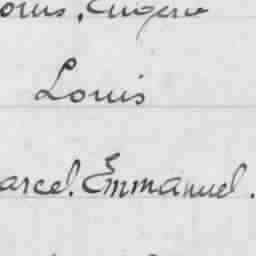 ouis, Eugène
Louis
arcel. Emmanuel.